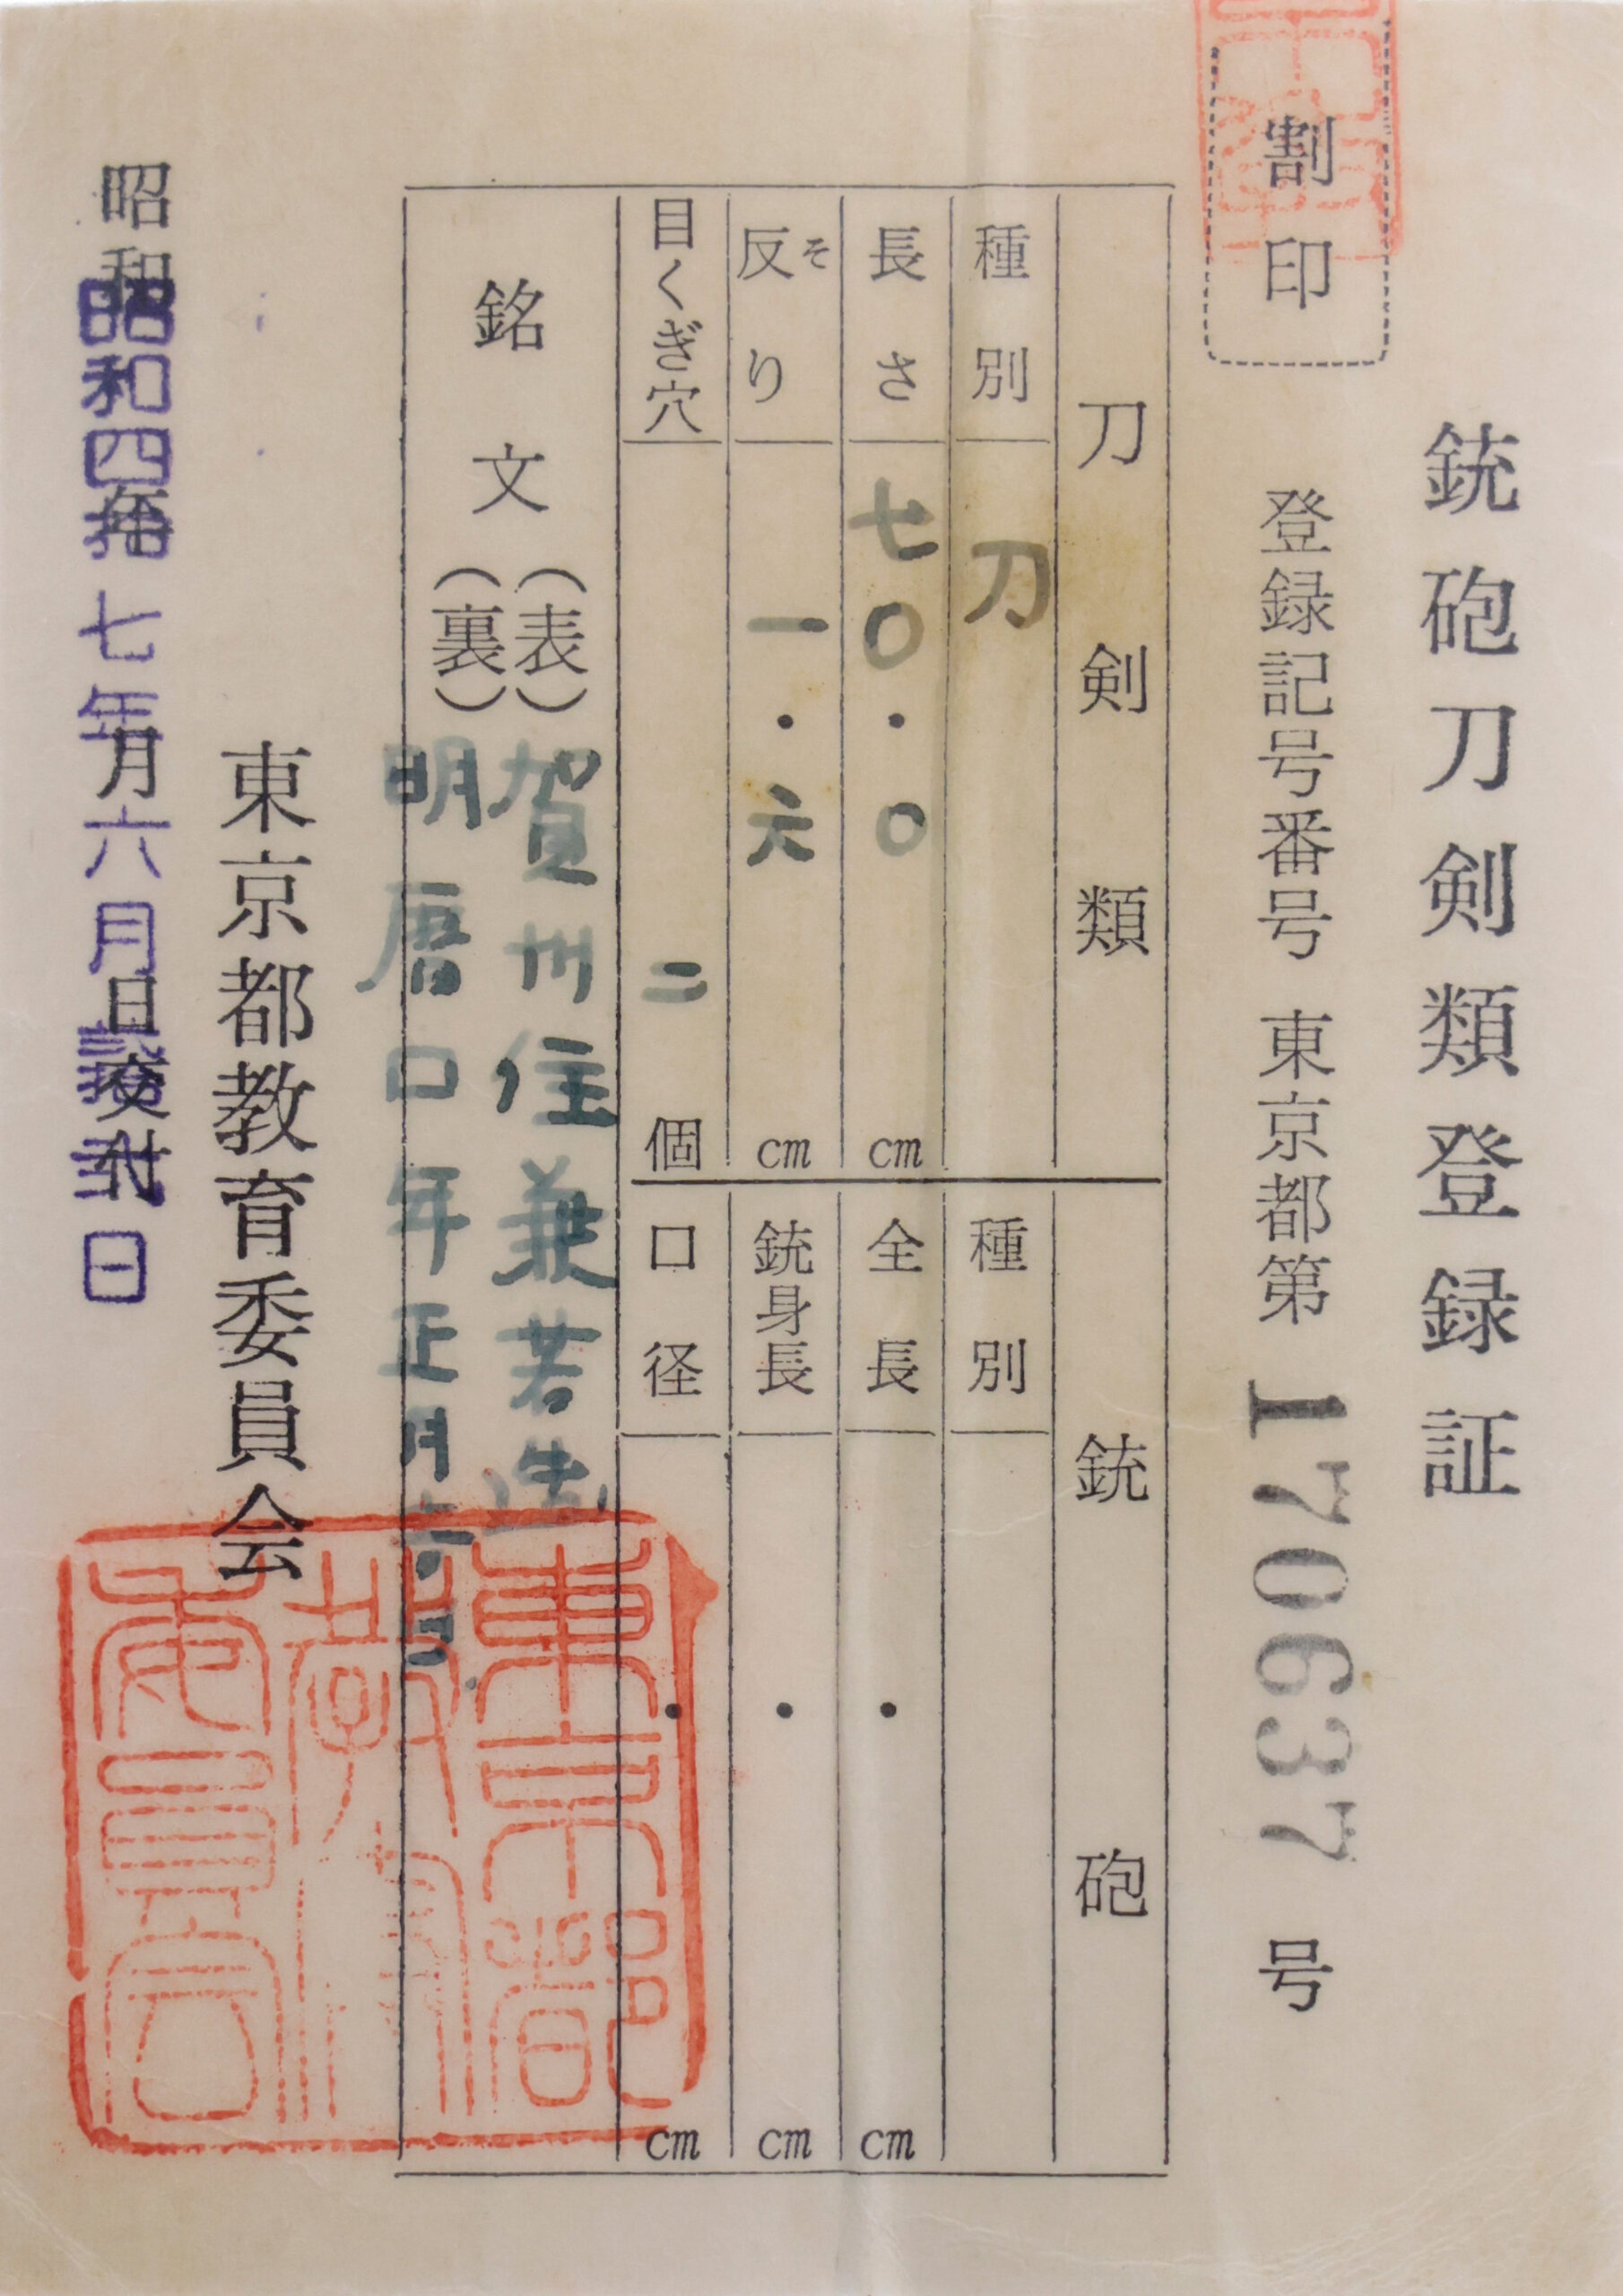 銃砲刀剣類登録証
割印
登録記号番号 東京都第 170637 号
刀剣類
種別 刀
長さ 七〇・〇 cm
反り そ 一・六 cm
目くぎ穴 二 個
銃砲
種別
全長 ・ cm
銃身長 ・ cm
口径 ・ cm
銘文
(表) 賀州住兼若造
(裏) 明暦口年正月六日
東京都教育委員会
昭和 年 月 日交付
昭和四拾七年六月 日
東京都教育委員会